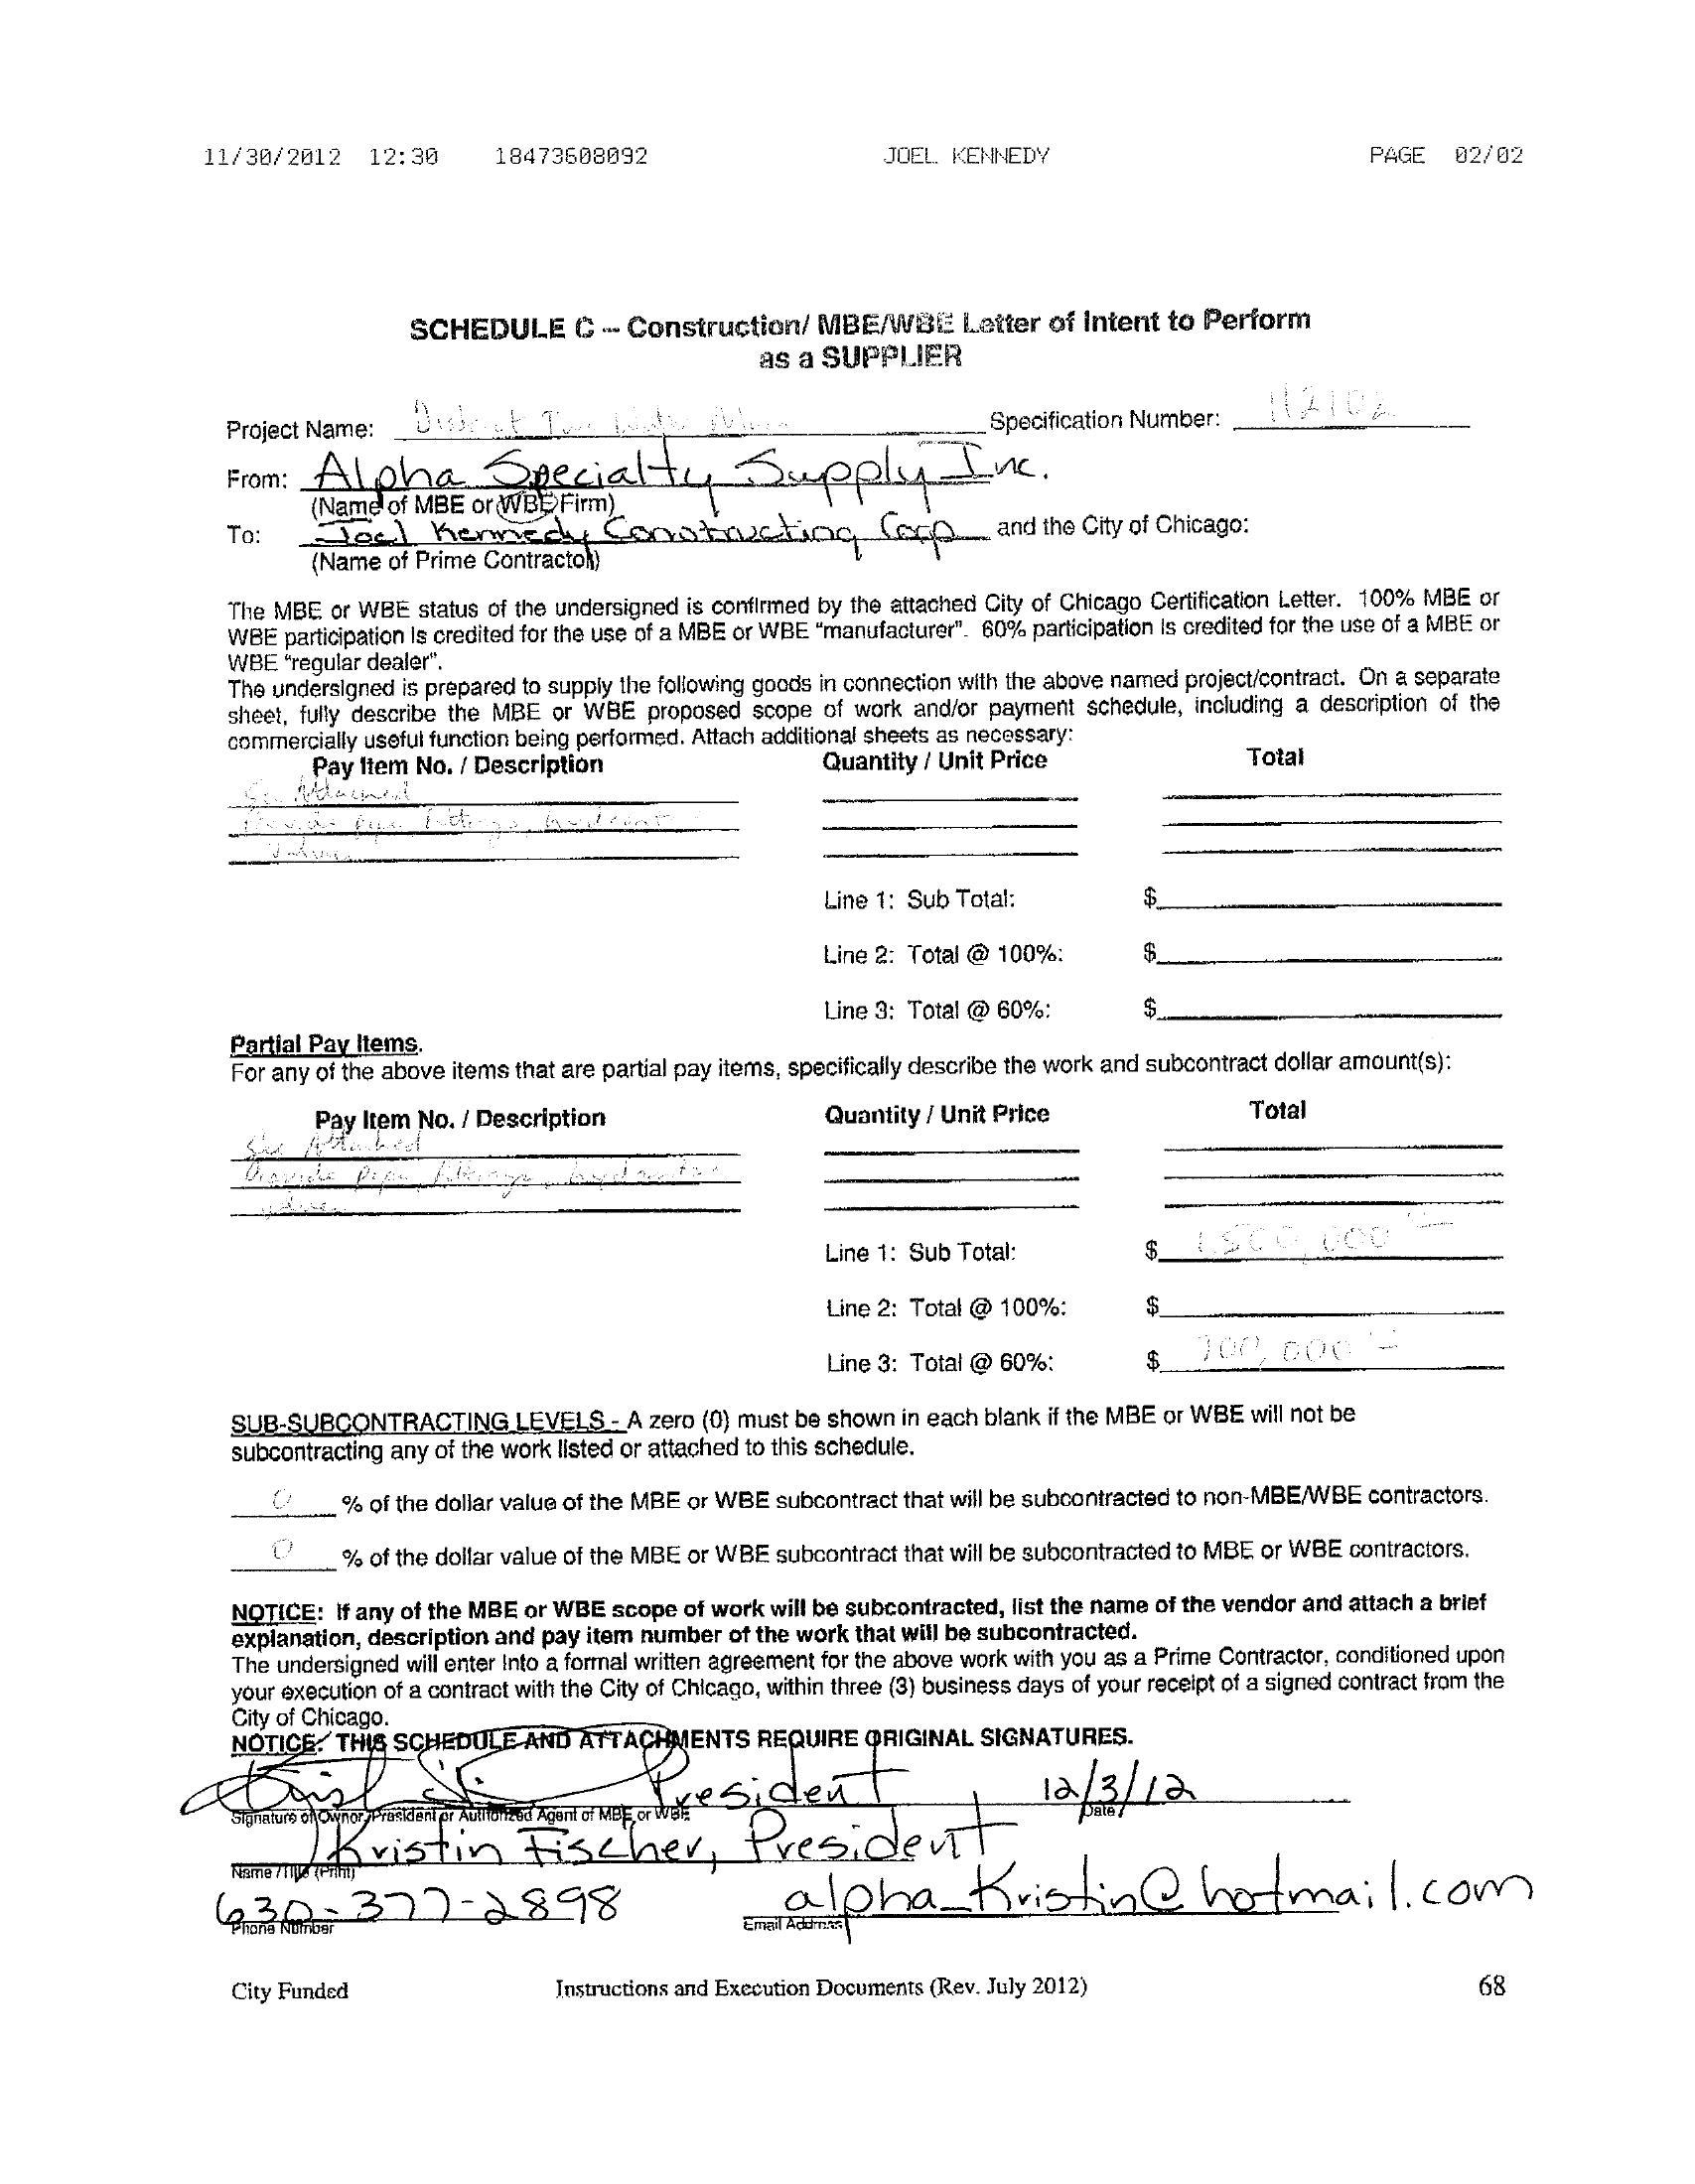 11/30/2012 12:30 18473608092 JOEL KENNEDY PAGE 02/02
SCHEDULE C -- Construction/ MBE/WBE Letter of Intent to Perform
as a SUPPLIER
Project Name: District Two Water Main Specification Number: 112102
From: Alpha Specialty Supply Inc.
(Name of MBE or WBE Firm)
To: Joel Kennedy Constructing Corp and the City of Chicago:
(Name of Prime Contractor)
The MBE or WBE status of the undersigned is confirmed by the attached City of Chicago Certification Letter. 100% MBE or
WBE participation is credited for the use of a MBE or WBE "manufacturer". 60% participation is credited for the use of a MBE or
WBE "regular dealer".
The undersigned is prepared to supply the following goods in connection with the above named project/contract. On a separate
sheet, fully describe the MBE or WBE proposed scope of work and/or payment schedule, including a description of the
commercially useful function being performed. Attach additional sheets as necessary:
Pay Item No. / Description Quantity / Unit Price Total
See Attached
Provide pipe, fittings, hydrant
Valves
Line 1: Sub Total: $
Line 2: Total @ 100%: $
Line 3: Total @ 60%: $
Partial Pay Items.
For any of the above items that are partial pay items, specifically describe the work and subcontract dollar amount(s):
Pay Item No. / Description Quantity / Unit Price Total
See Attached
Provide pipe, fittings, hydrants
valves
Line 1: Sub Total: $ 1,500,000
Line 2: Total @ 100%: $
Line 3: Total @ 60%: $ 900,000
SUB-SUBCONTRACTING LEVELS - A zero (0) must be shown in each blank if the MBE or WBE will not be
subcontracting any of the work listed or attached to this schedule.
0 % of the dollar value of the MBE or WBE subcontract that will be subcontracted to non-MBE/WBE contractors.
0 % of the dollar value of the MBE or WBE subcontract that will be subcontracted to MBE or WBE contractors.
NOTICE: If any of the MBE or WBE scope of work will be subcontracted, list the name of the vendor and attach a brief
explanation, description and pay item number of the work that will be subcontracted.
The undersigned will enter into a formal written agreement for the above work with you as a Prime Contractor, conditioned upon
your execution of a contract with the City of Chicago, within three (3) business days of your receipt of a signed contract from the
City of Chicago.
NOTICE: THIS SCHEDULE AND ATTACHMENTS REQUIRE ORIGINAL SIGNATURES.
President 12/3/12
Signature of Owner, President or Authorized Agent of MBE or WBE Date
Kristin Fischer, President
Name / Title (Print)
630-377-2898 alpha_Kristin@hotmail.com
Phone Number Email Address
City Funded Instructions and Execution Documents (Rev. July 2012) 68